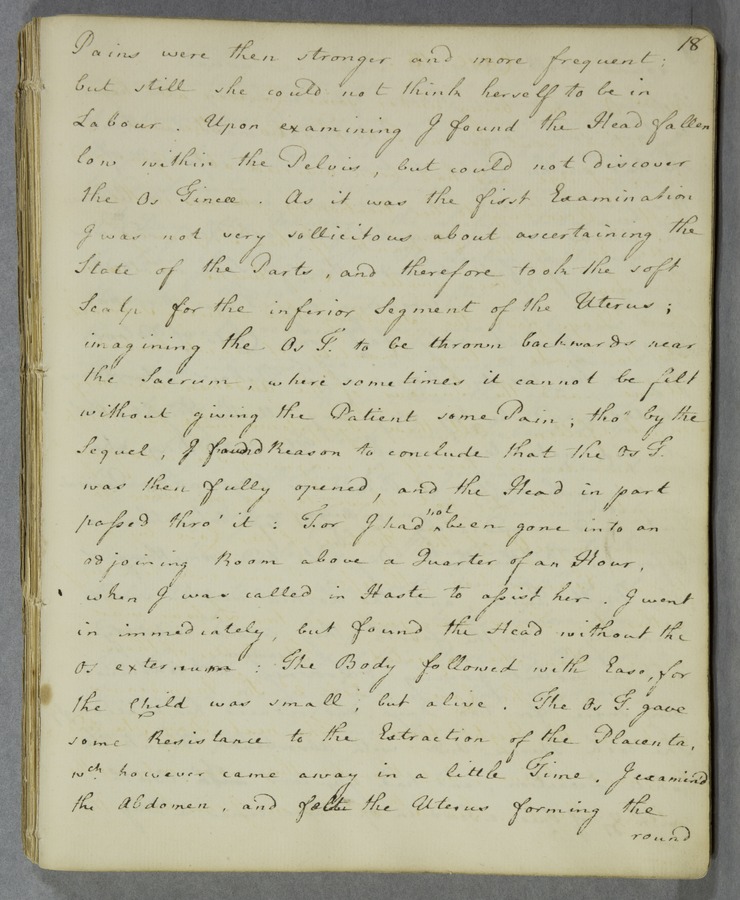 18
Pains were then stronger and more frequent;
but still she could not think herself to be in
Labour. Upon examining I found the Head fallen
low within the Pelvis, but could not discover
the Os Tincæ. As it was the first Examination
I was not very sollicitous about ascertaining the
State of the Parts, and therefore took the soft
Scalp for the inferior Segment of the Uterus;
imagining the Os T. to be thrown backwards near
the Sacrum, where sometimes it cannot be felt
without giving the Patient some Pain; tho' by the
Sequel, I found Reason to conclude that the Os T.
was then fully opened, and the Head in part
passed thro' it: For I had not been gone into an
adjoining Room above a Quarter of an Hour,
when I was called in Haste to assist her. I went
in immediately, but found the Head without the
Os externum: The Body followed with Ease, for
the Child was small, but alive. The Os T. gave
some Resistance to the Extraction of the Placenta,
wch. however came away in a little Time. I examin'd
the Abdomen, and felt the Uterus forming the
round